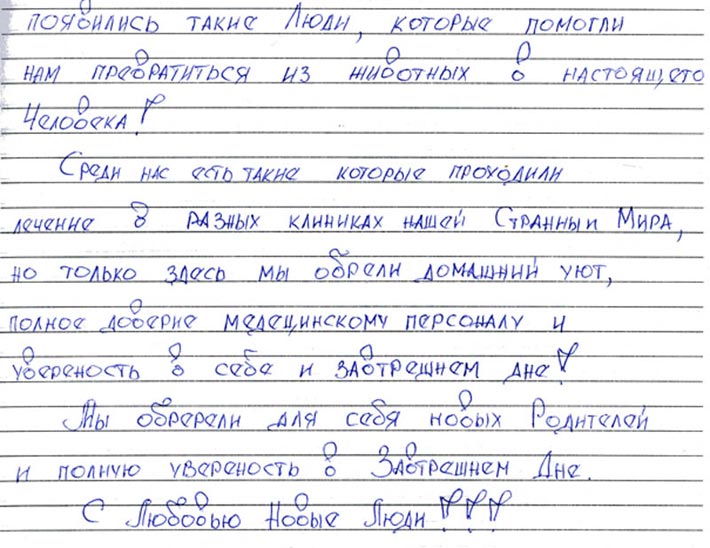 появились такие Люди, которые помогли
нам превратиться из животных в настоящего
Человека!
Среди нас есть такие которые проходили
лечение в разных клиниках нашей Странны и Мира,
но только здесь мы обрели домашний уют,
полное доверие медецинскому персоналу и
увереность в себе и завтрешнем дне!
Мы обререли для себя новых Родителей
и полную увереность в Завтрешнем Дне.
С Любовью Новые Люди!!!